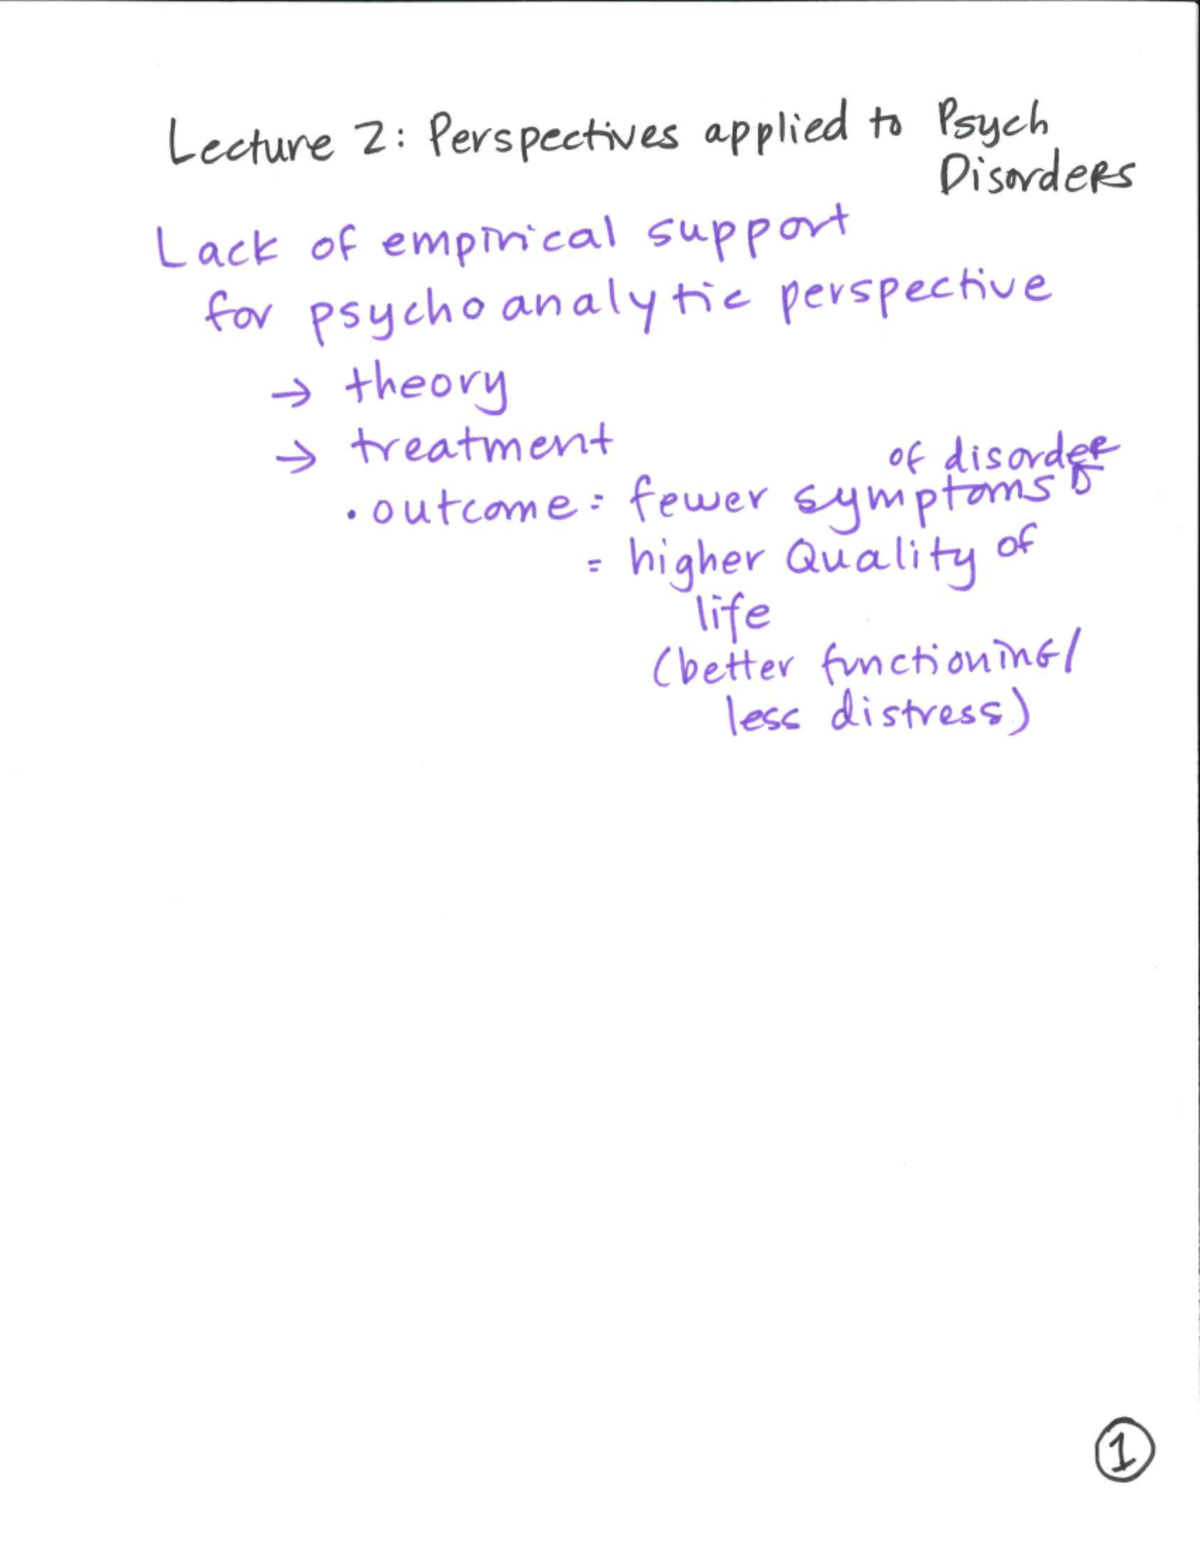 Lecture 2: Perspectives applied to Psych
Disorders
Lack of empirical support
for psychoanalytic perspective
→ theory
→ treatment
of disorder
• outcome = fewer symptoms
= higher Quality of
life
(better functioning/
less distress)
1